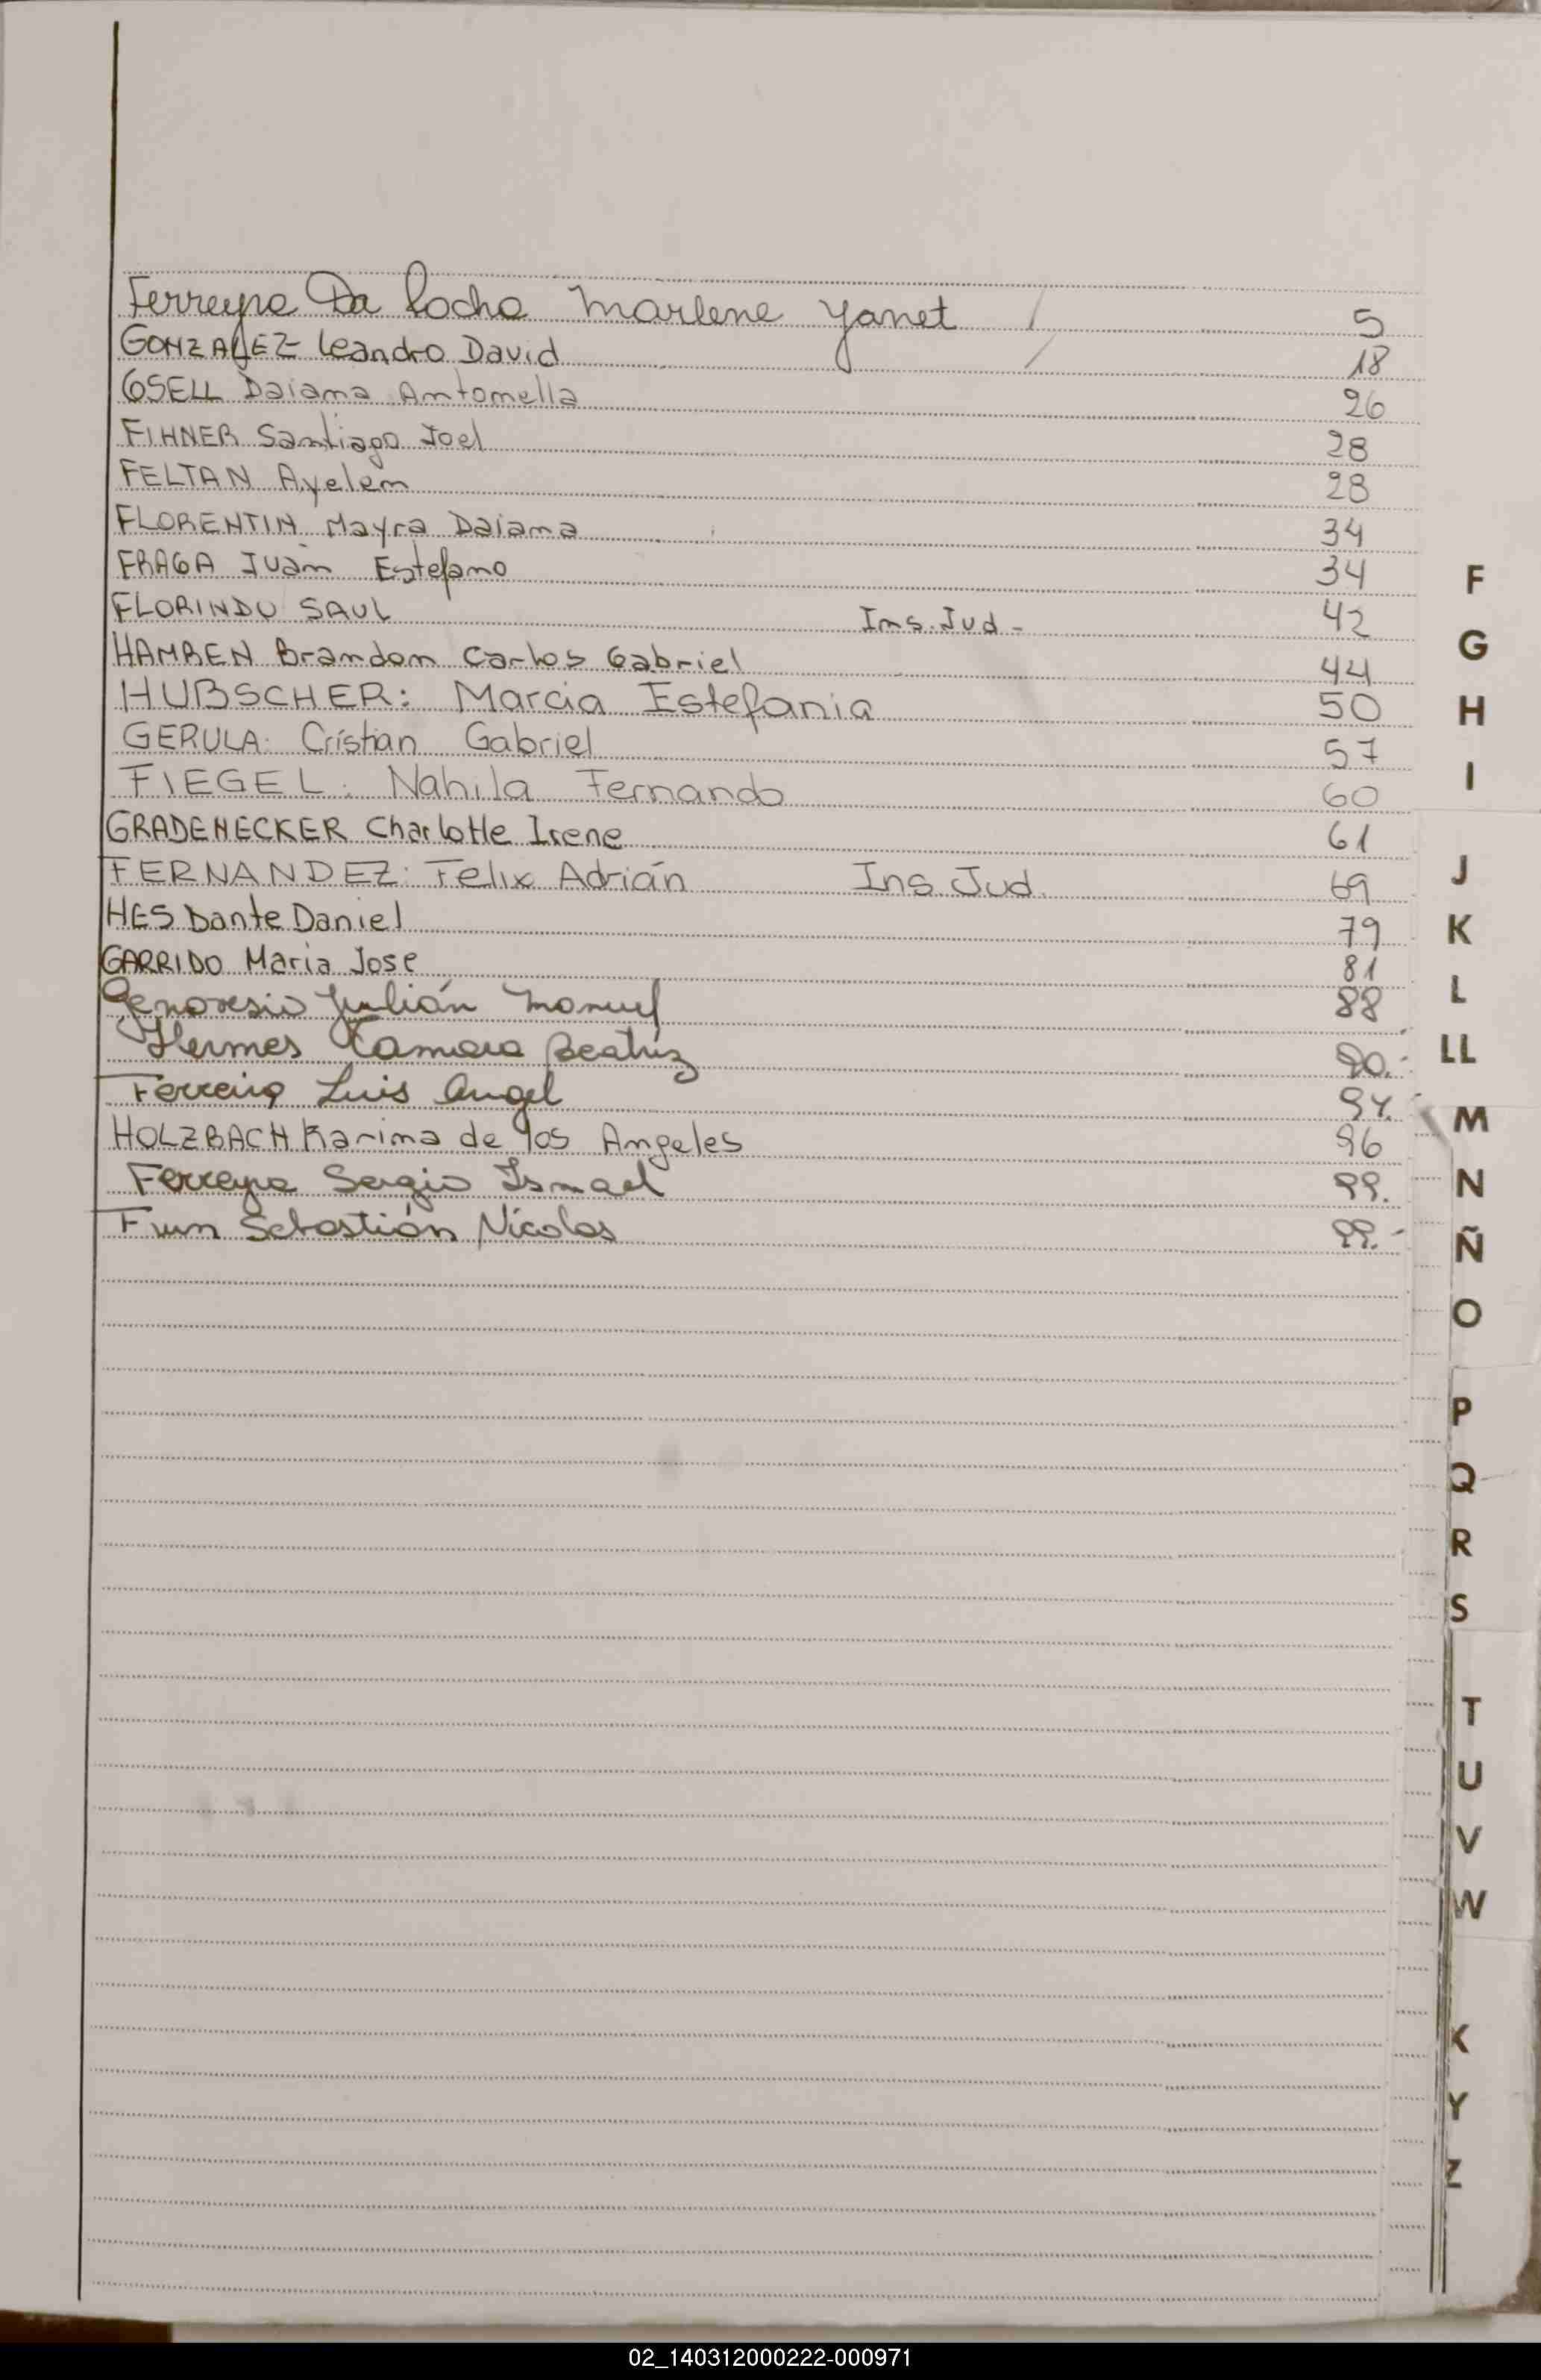 Ferreyra Da Rocha Marlene Yanet / 5
GONZALEZ Leandro David / 18
GSELL Daiana Antonella 26
FIHNER Santiago Joel 28
FELTAN Ayelen 28
FLORENTIN Mayra Daiana 34
FRAGA Juan Estefano 34
FLORINDO SAUL Ins. Jud - 42
HAMBEN Brandon Carlos Gabriel 44
HUBSCHER: Marcia Estefania 50
GERULA: Cristian Gabriel 57
FIEGEL: Nahila Fernando 60
GRADENECKER Charlotte Irene 61
FERNANDEZ: Felix Adrián Ins. Jud. 69
HES Dante Daniel 79
GARRIDO Maria Jose 81
Genovesio Julián Manuel 88
Hermes Tamara Beatriz 90.-
Ferreira Luis Angel 94.-
HOLZBACH Karina de los Angeles 96
Ferreyra Sergio Ismael 99.
Sebastián Nicolas 99.-
F
G
H
I
J
K
L
LL
M
N
Ñ
O
P
Q
R
S
T
U
V
W
Y
Z
02_140312000222-000971